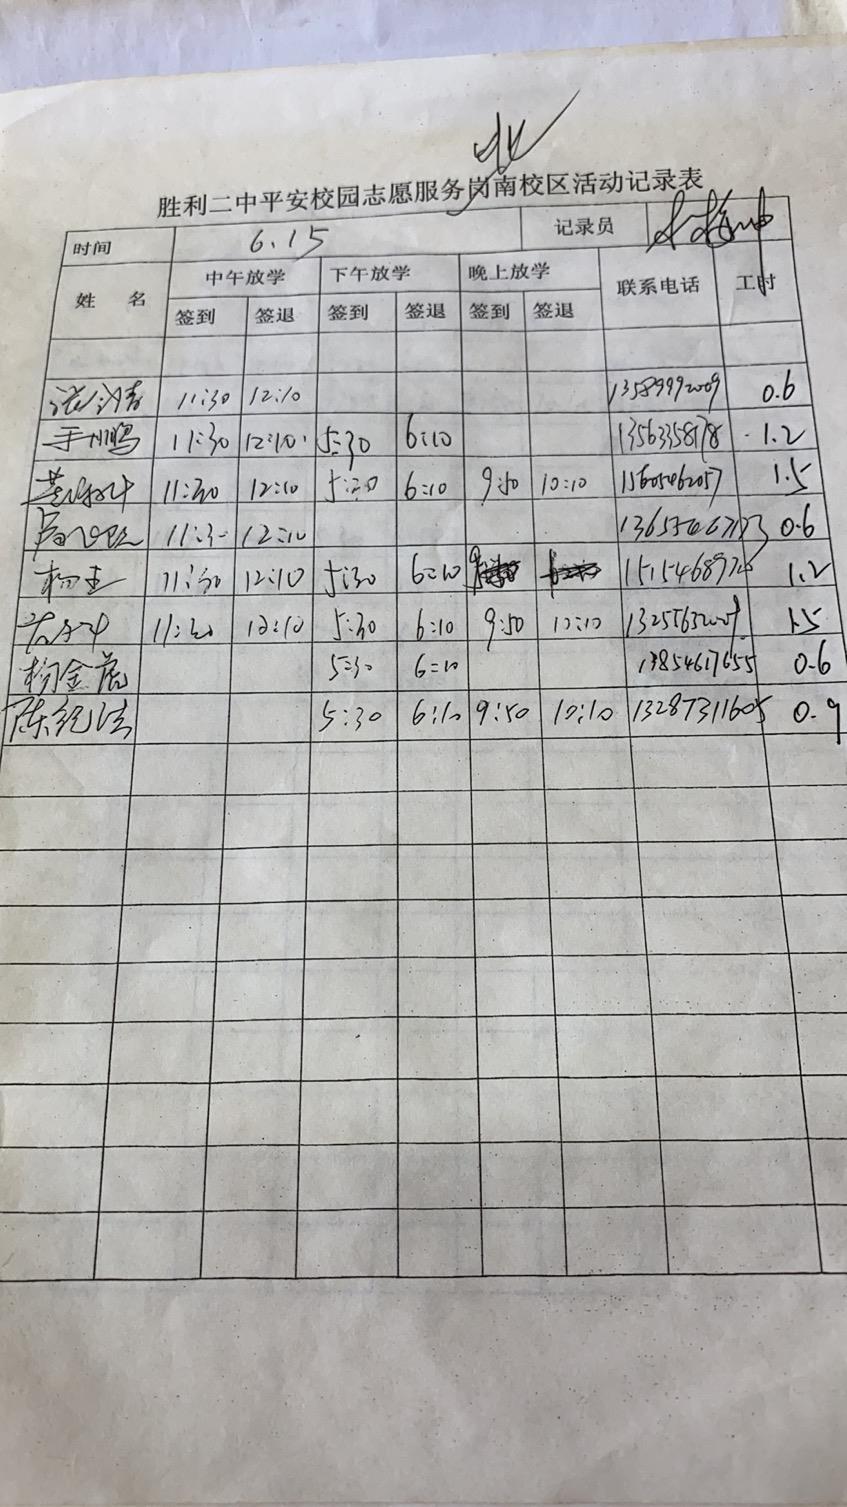 北
胜利二中平安校园志愿服务岗南校区活动记录表
时间 6.15 记录员
姓 名 中午放学 下午放学 晚上放学 联系电话 工时
签到 签退 签到 签退 签到 签退
11:30 12:10 13589992009 0.6
11:30 12:10 5:30 6:10 13563358178 1.2
11:30 12:10 5:30 6:10 9:50 10:10 15605462057 1.5
11:30 12:10 0.6
杨玉 11:30 12:10 5:30 6:10 1.2
11:30 12:10 5:30 6:10 9:50 10:10 1.5
杨金虎 5:30 6:10 13854617655 0.6
陈纪法 5:30 6:10 9:50 10:10 13287311605 0.9